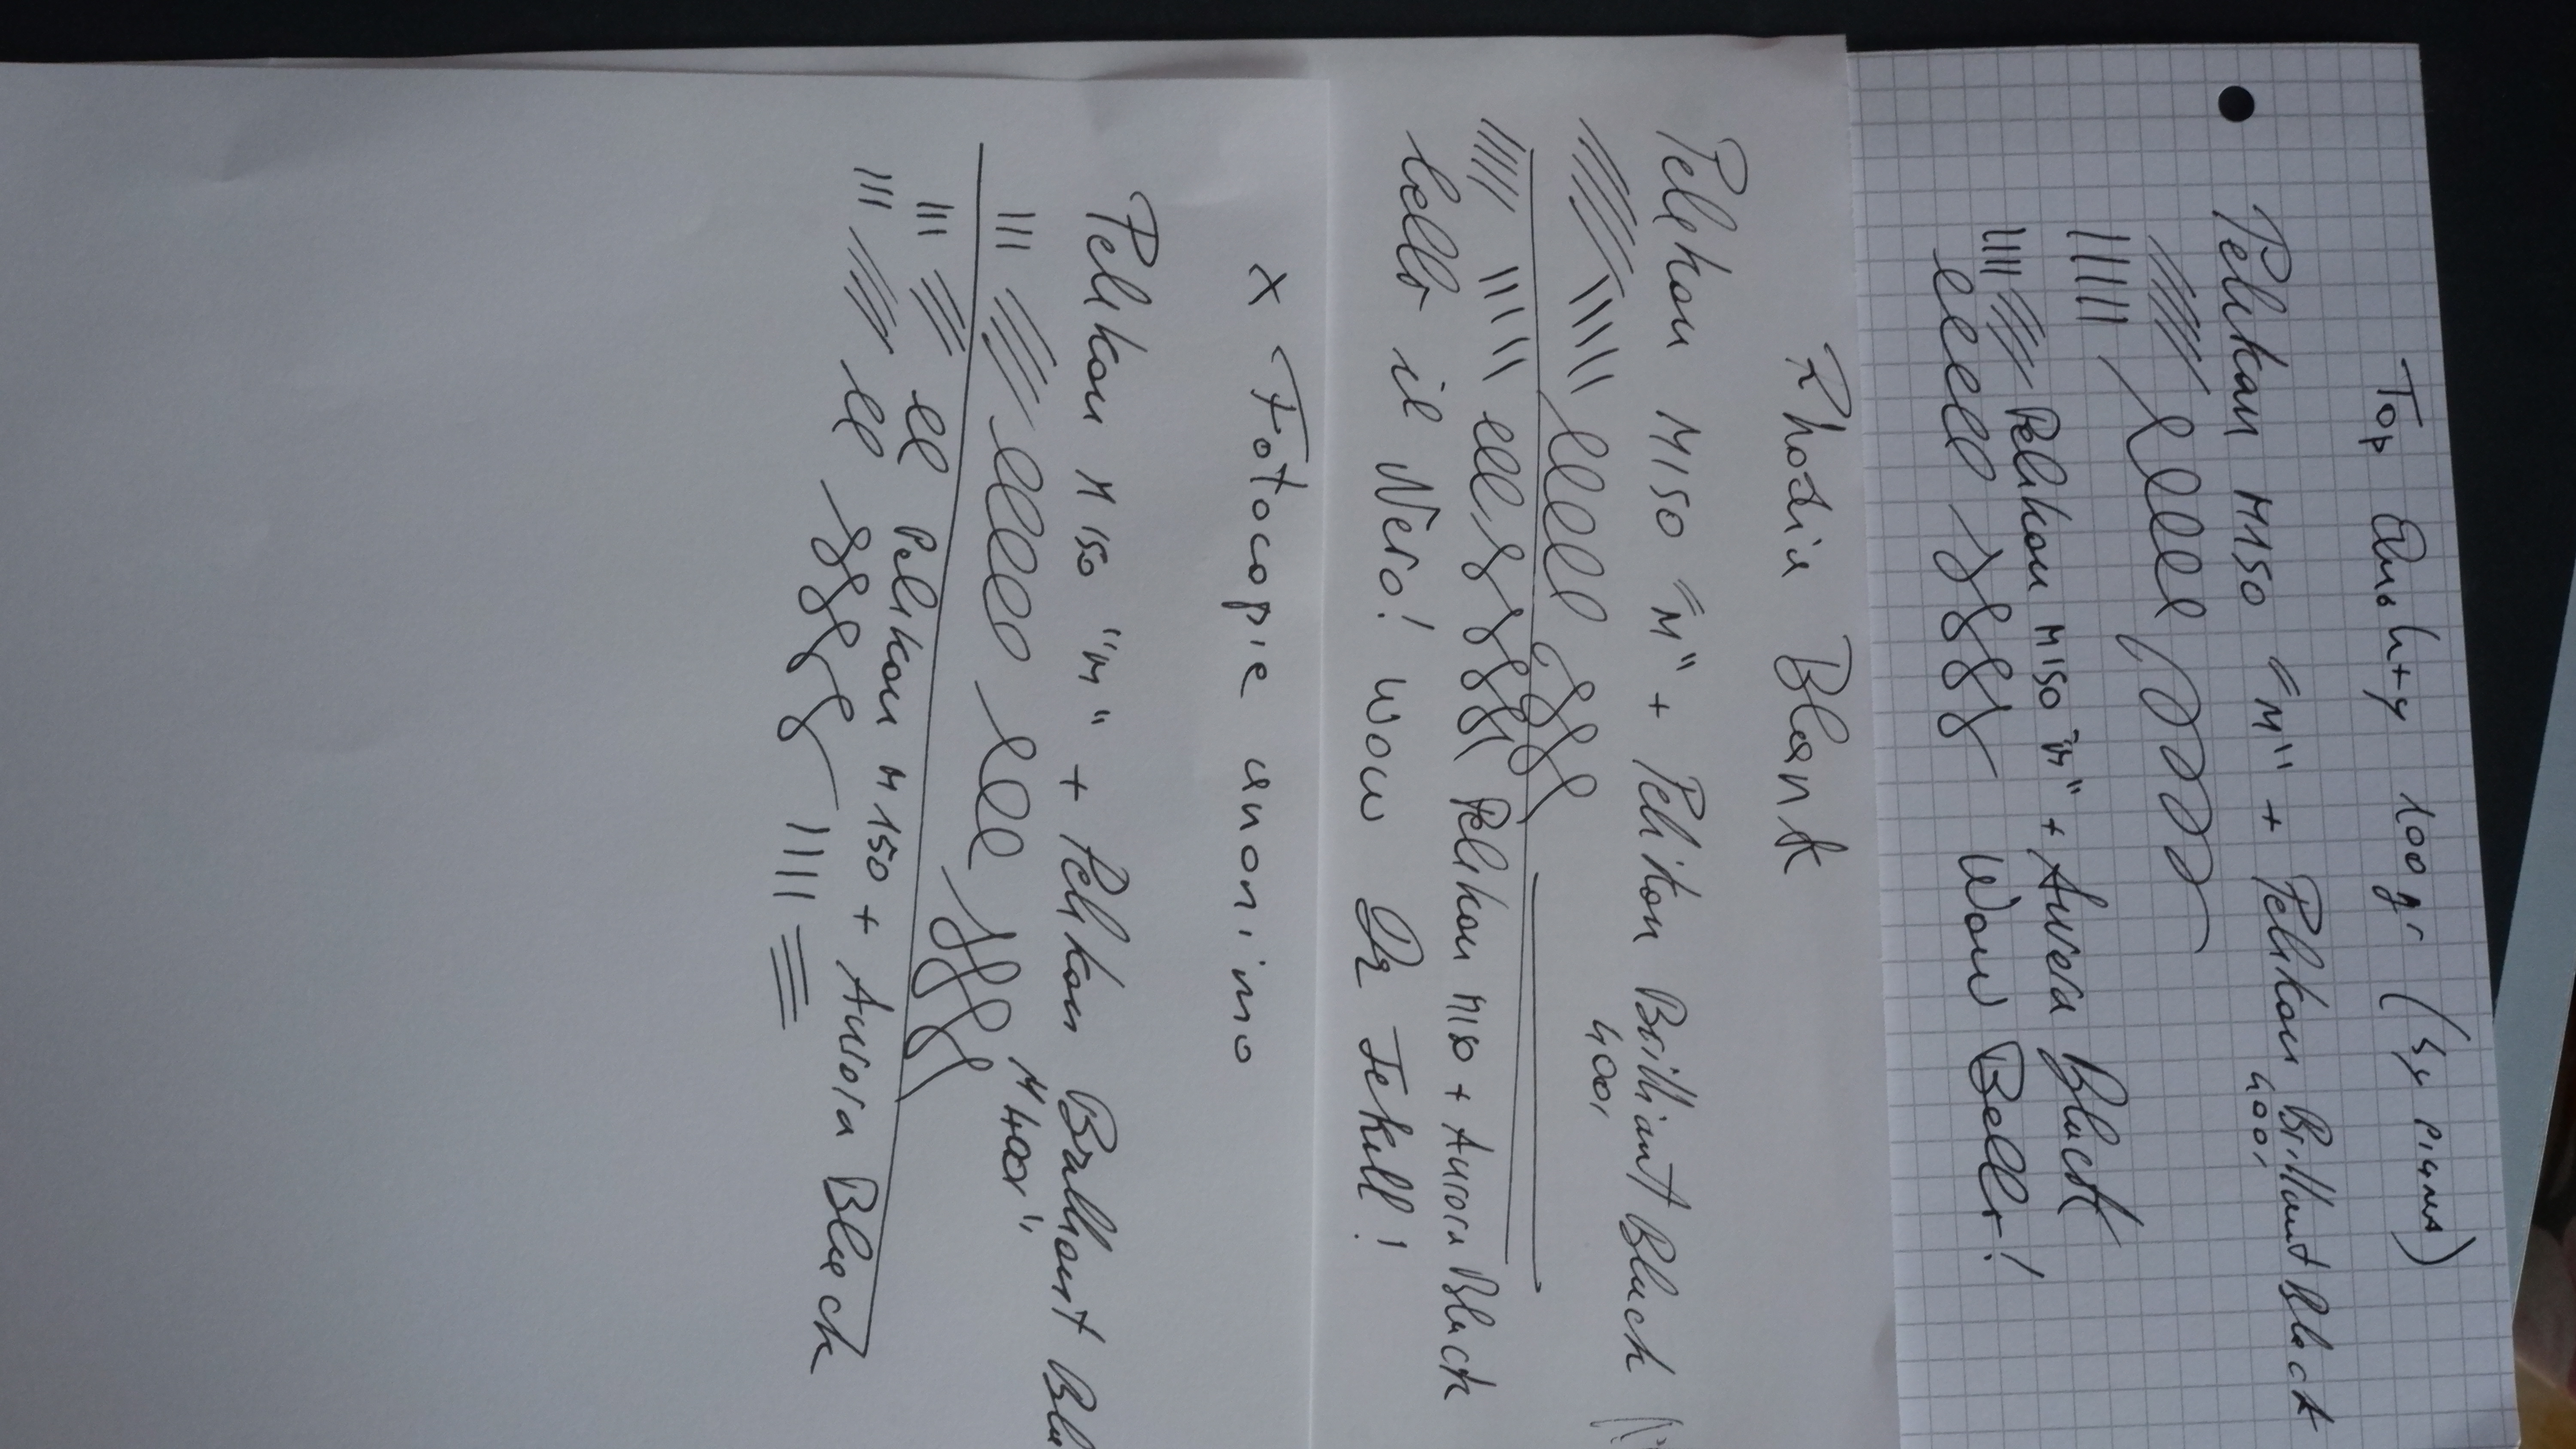 Top Quality 100gr (
Pelikan M150 "M" + Pelikan Brillant Black
400,
Pelikan M150 "M" + Aurora Black
Wow Bello!
Rhodia Blank
Pelikan M150 "M" + Pelikan Brilliant Black
400,
Pelikan M150 + Aurora Black
bello il Nero! Wow Dr Jekill!
X Fotocopie anonimo
Pelikan M150 "M" + Pelikan Brillant
M400,
Pelikan M150 + Aurora Black